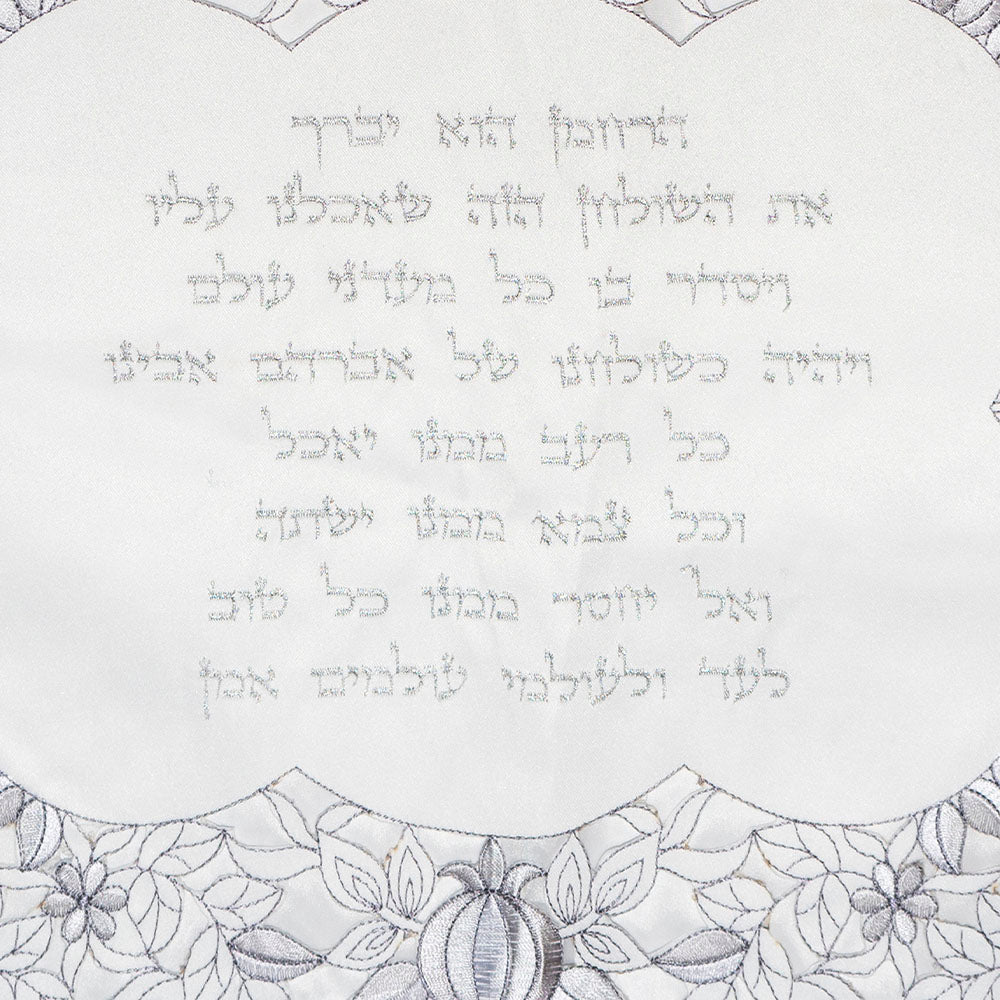 הרחמן הוא יברך
את השולחן הזה שאכלנו עליו
ויסדר בו כל מעדני עולם
ויהיה כשולחנו של אברהם אבינו
כל רעב ממנו יאכל
וכל צמא ממנו ישתה
ואל יחסר ממנו כל טוב
לעד ולעולמי עולמים אמן